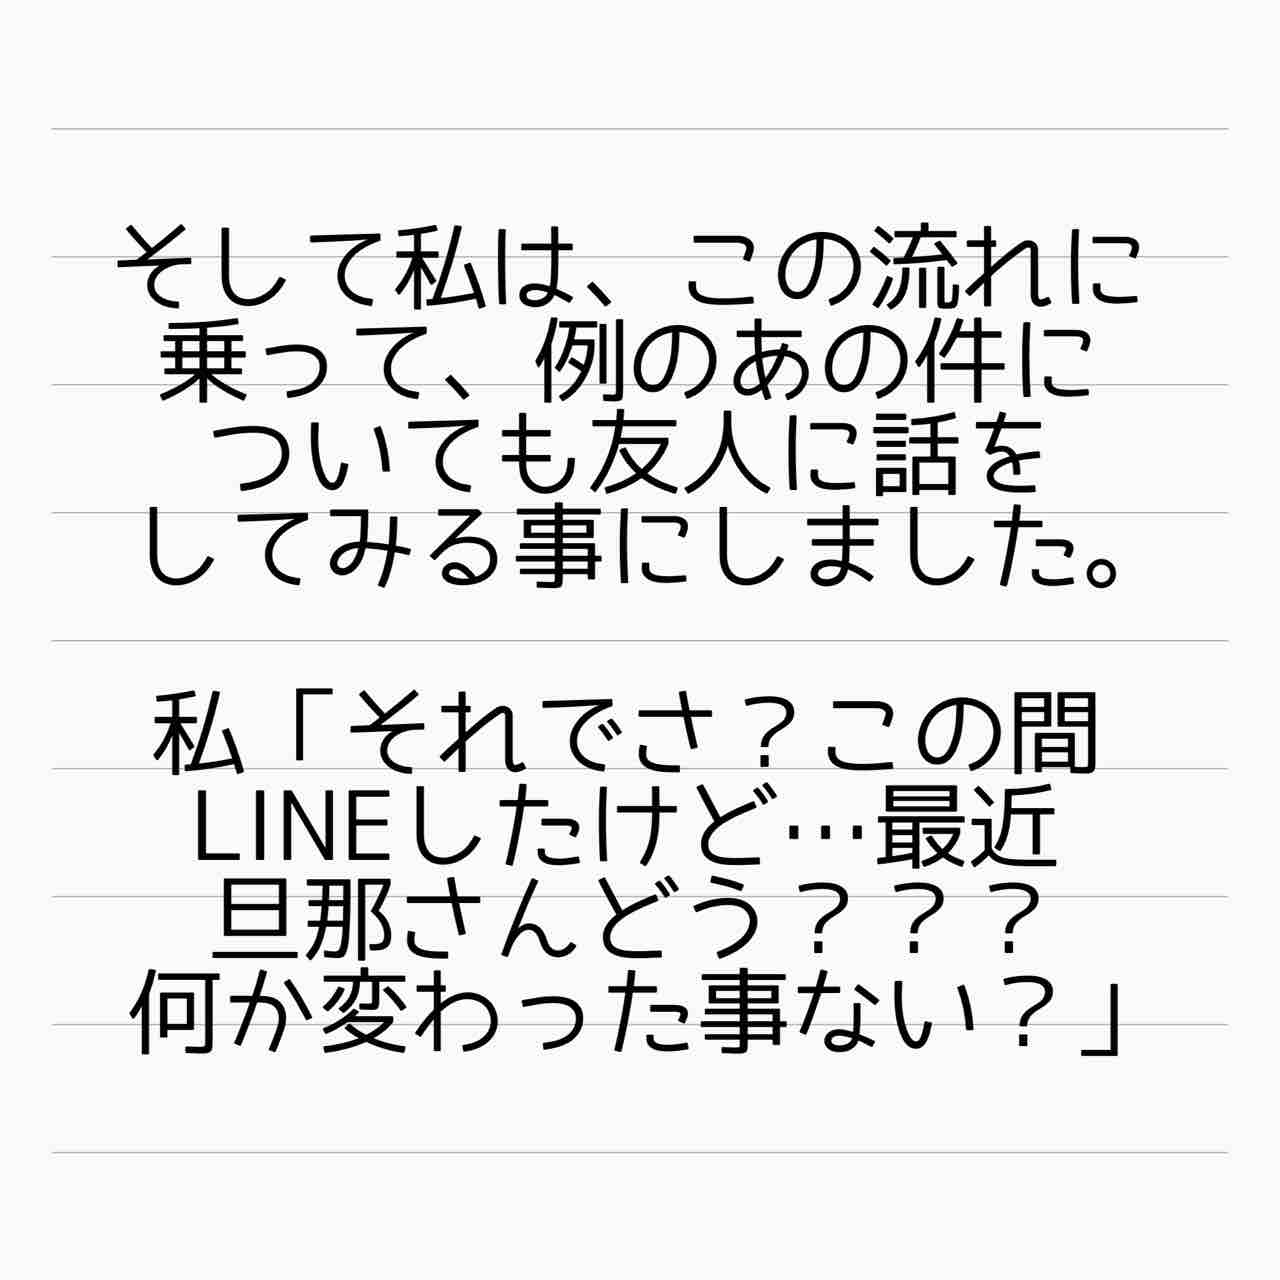 そして私は、この流れに
乗って、例のあの件に
ついても友人に話を
してみる事にしました。
私「それでさ？この間
LINEしたけど…最近
旦那さんどう？？？
何か変わった事ない？」